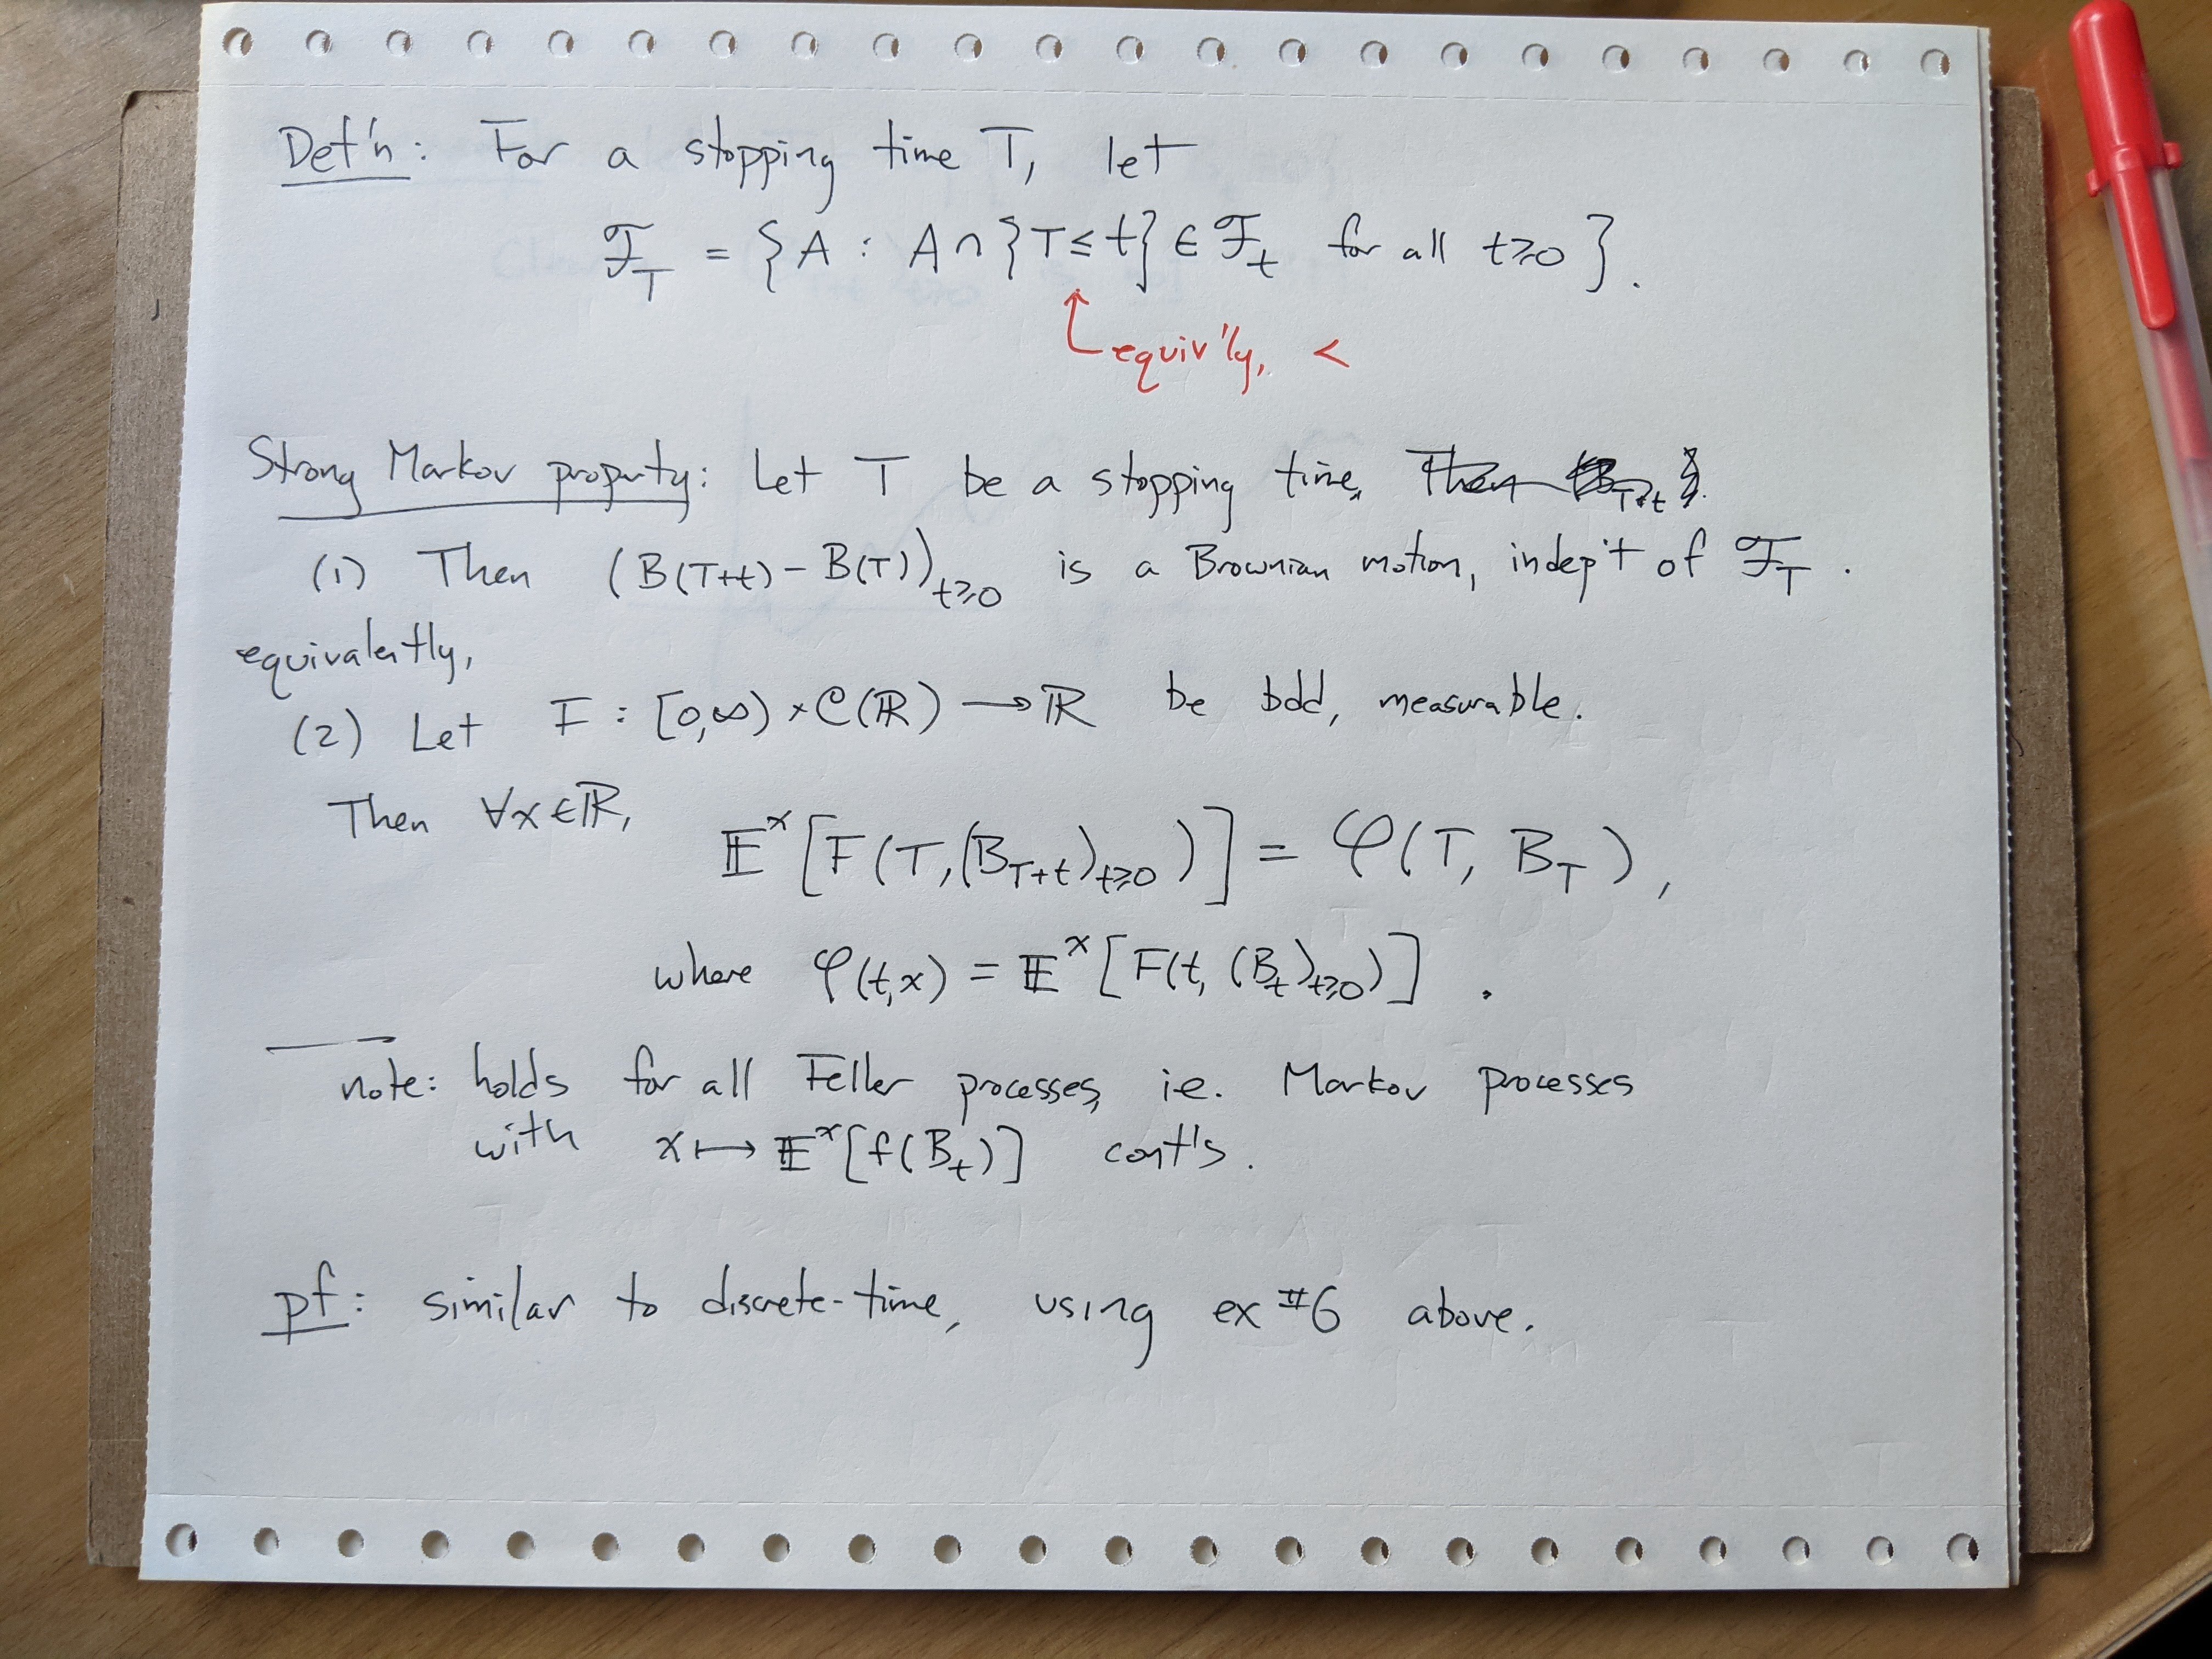 Def'n: For a stopping time T, let
ℱ_T = {A : A ∩ {T ≤ t} ∈ ℱ_t for all t ≥ 0}.
equiv'ly, <
Strong Markov property: Let T be a stopping time. Then (B_{T+t})
(1) Then (B(T+t) - B(T))_{t≥0} is a Brownian motion, indep't of ℱ_T.
equivalently,
(2) Let F : [0,∞) × C(ℝ) → ℝ be bdd, measurable.
Then ∀x∈ℝ, 𝔼^x[F(T,(B_{T+t})_{t≥0})] = φ(T, B_T),
where φ(t,x) = 𝔼^x[F(t, (B_t)_{t≥0})].
note: holds for all Feller processes, ie. Markov processes
with x ↦ 𝔼^x[f(B_t)] cont's.
pf: similar to discrete-time, using ex #6 above.